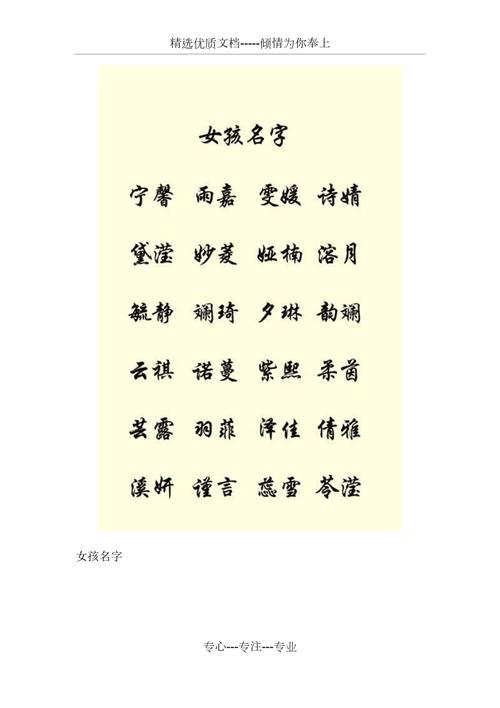 精选优质文档-----倾情为你奉上
女孩名字
宁馨 雨嘉 雯媛 诗婧
黛滢 妙菱 娅楠 溶月
毓静 斓琦 夕琳 韵斓
云祺 诺蔓 紫熙 柔茵
芸露 羽菲 泽佳 倩雅
溪妍 谨言 蕊雪 苓滢
女孩名字
专心---专注---专业